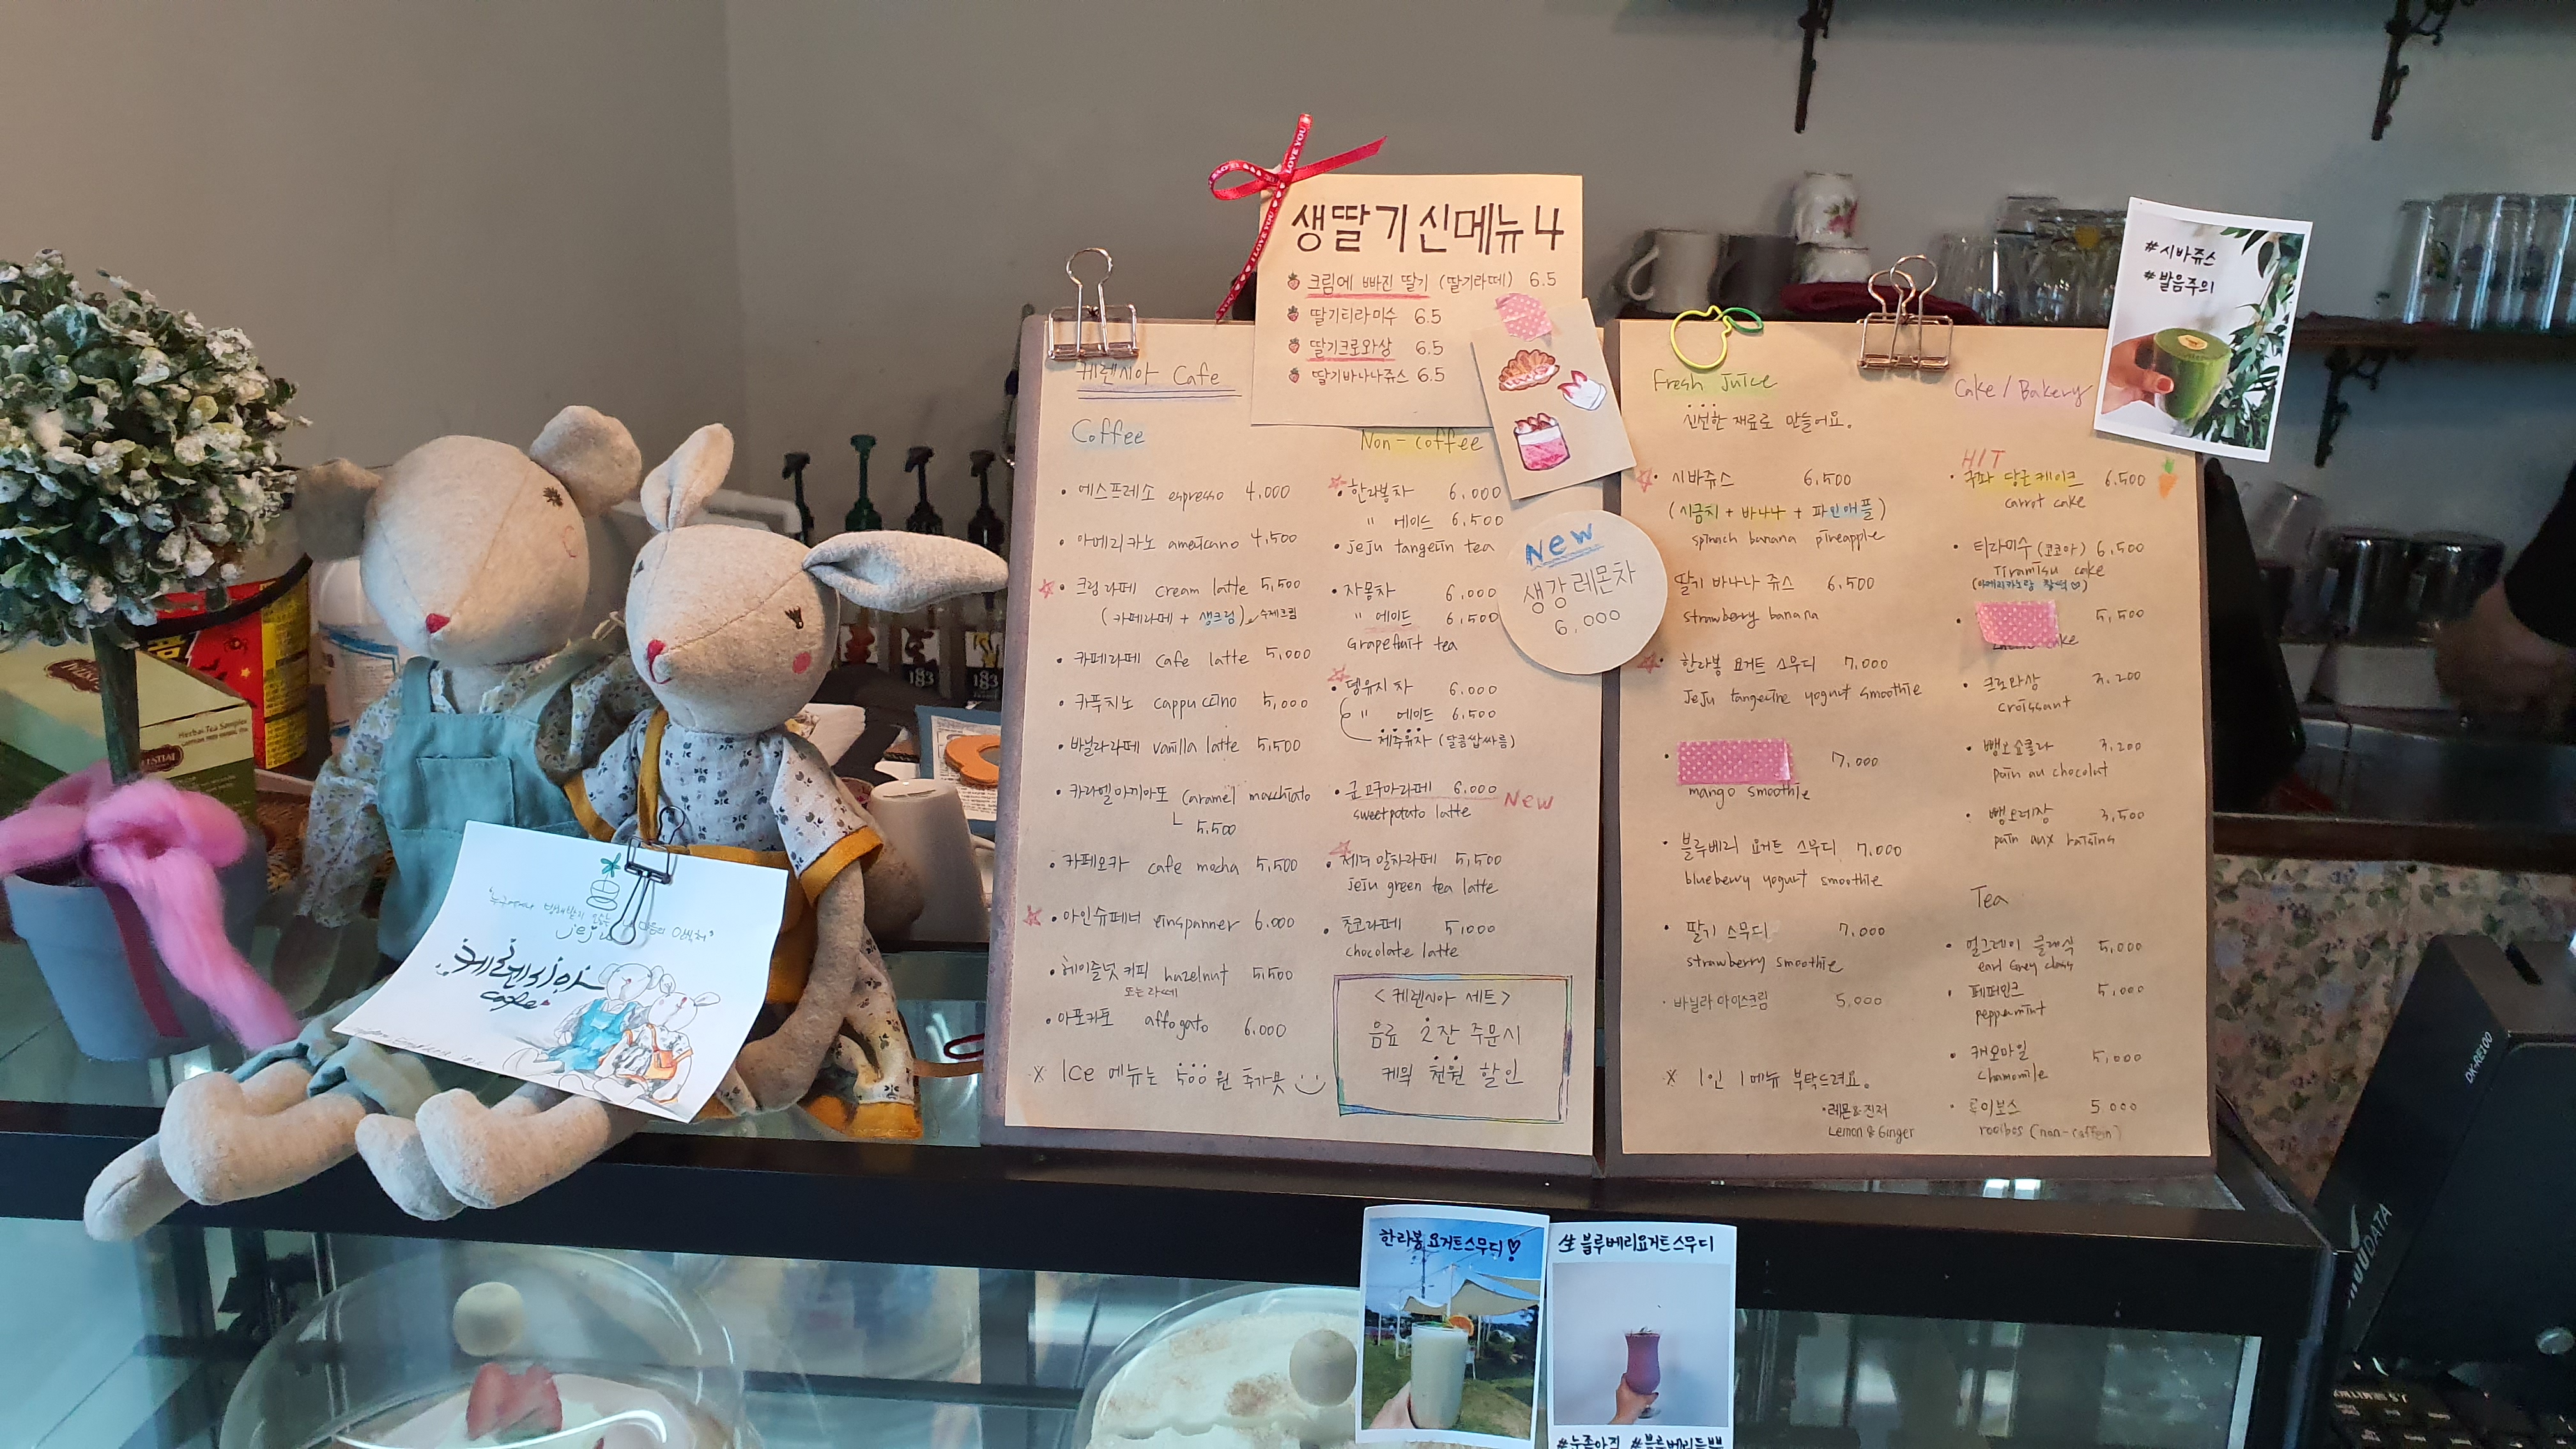 생딸기 신메뉴 4
크림에 빠진 딸기 (딸기라떼) 6.5
딸기티라미수 6.5
딸기크로와상 6.5
딸기바나나쥬스 6.5
케렌시아 Cafe
Coffee
에스프레소 espresso 4,000
아메리카노 americano 4,500
크림라떼 cream latte 5,500
(카페라떼 + 생크림) 수제크림
카페라떼 cafe latte 5,000
카푸치노 cappuccino 5,000
바닐라라떼 vanilla latte 5,500
카라멜마끼아또 caramel macchiato
5,500
카페모카 cafe mocha 5,500
아인슈페너 einspanner 6.000
헤이즐넛 커피 hazelnut 5,500
또는 라떼
아포카토 affogato 6.000
※ Ice 메뉴는 500원 추가 못
Non-coffee
한라봉차 6.000
" 에이드 6,500
jeju tangerin tea
자몽차 6.000
" 에이드 6,500
Grapefruit tea
댕유지차 6.000
" 에이드 6,500
제주유자 (달콤쌉싸름)
군고구마라떼 6.000 New
sweetpotato latte
제주말차라떼 5,500
jeju green tea latte
초코라떼 5,000
chocolate latte
<케렌시아 세트>
음료 2잔 주문시
케잌 천원 할인
New
생강레몬차
6.000
Fresh juice
신선한 재료로 만들어요.
시바쥬스 6,500
(시금치 + 바나나 + 파인애플)
spinach banana pineapple
딸기 바나나 쥬스 6.500
strawberry banana
한라봉 요거트 스무디 7,000
jeju tangerine yogurt smoothie
7,000
mango smoothie
블루베리 요거트 스무디 7,000
blueberry yogurt smoothie
딸기 스무디 7,000
strawberry smoothie
바닐라 아이스크림 5,000
※ 1인 1메뉴 부탁드려요.
레몬&진저
Lemon & Ginger
Cake / Bakery
HIT
당근케이크 6,500
carrot cake
티라미수 (코코아) 6,500
Tiramisu cake
(아메리카노랑 찰떡♡)
5,500
크로와상 3.200
croissant
뺑오쇼콜라 3,200
pain au chocolat
뺑오레장 3,500
pain aux raisins
Tea
얼그레이 클래식 5,000
earl Grey class
페퍼민트 5,000
peppermint
캐모마일 5,000
chamomile
루이보스 5.000
rooibos (non-caffein)
#시바쥬스
#발음주의
jeju
케렌시아
cafe
한라봉 요거트스무디♡
生 블루베리요거트스무디
Herbal Tea Sampler
183
183
DK-RE100
I LOVE YOU